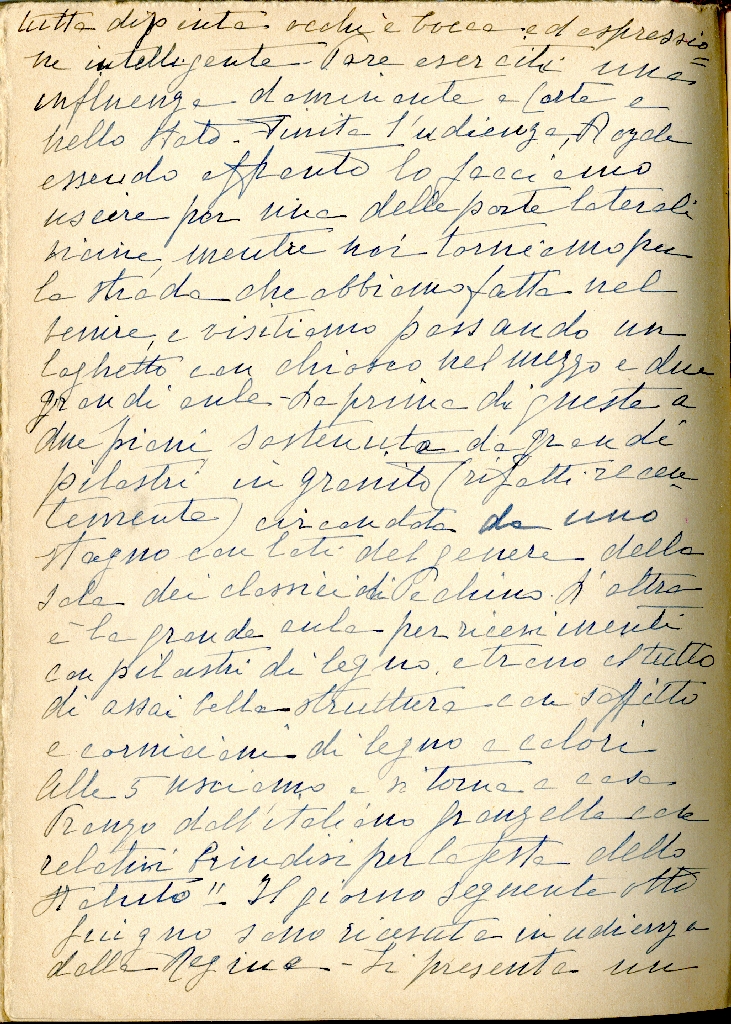 tutta dipinta occhi e bocca ed espressio=
ne intelligente - Pare eserciti una
influenza dominante a Corte e
nello Stato. Finita l'udienza,
essendo affranto lo facciamo
uscire per una delle porte laterali
vicine, mentre noi torniamo per
la strada che abbiamo fatta nel
venire, e visitiamo passando un
laghetto con chiosco nel mezzo e due
grandi aule - La prima di queste a
due piani sostenuta da grandi
pilastri in granito (rifatti recen=
temente) circondata da uno
stagno con lati del genere della
sala dei classici di Pechino. L'altra
è la grande aula per ricevimenti
con pilastri di legno, e trono il tutto
di assai bella struttura con soffitto
e cornicioni di legno a colori
Alle 5 usciamo e si torna a casa
Pranzo dall'italiano con
relativi brindisi per la festa dello
Statuto" - Il giorno seguente otto
giugno sono ricevuta in udienza
dalla Regina - Si presenta un